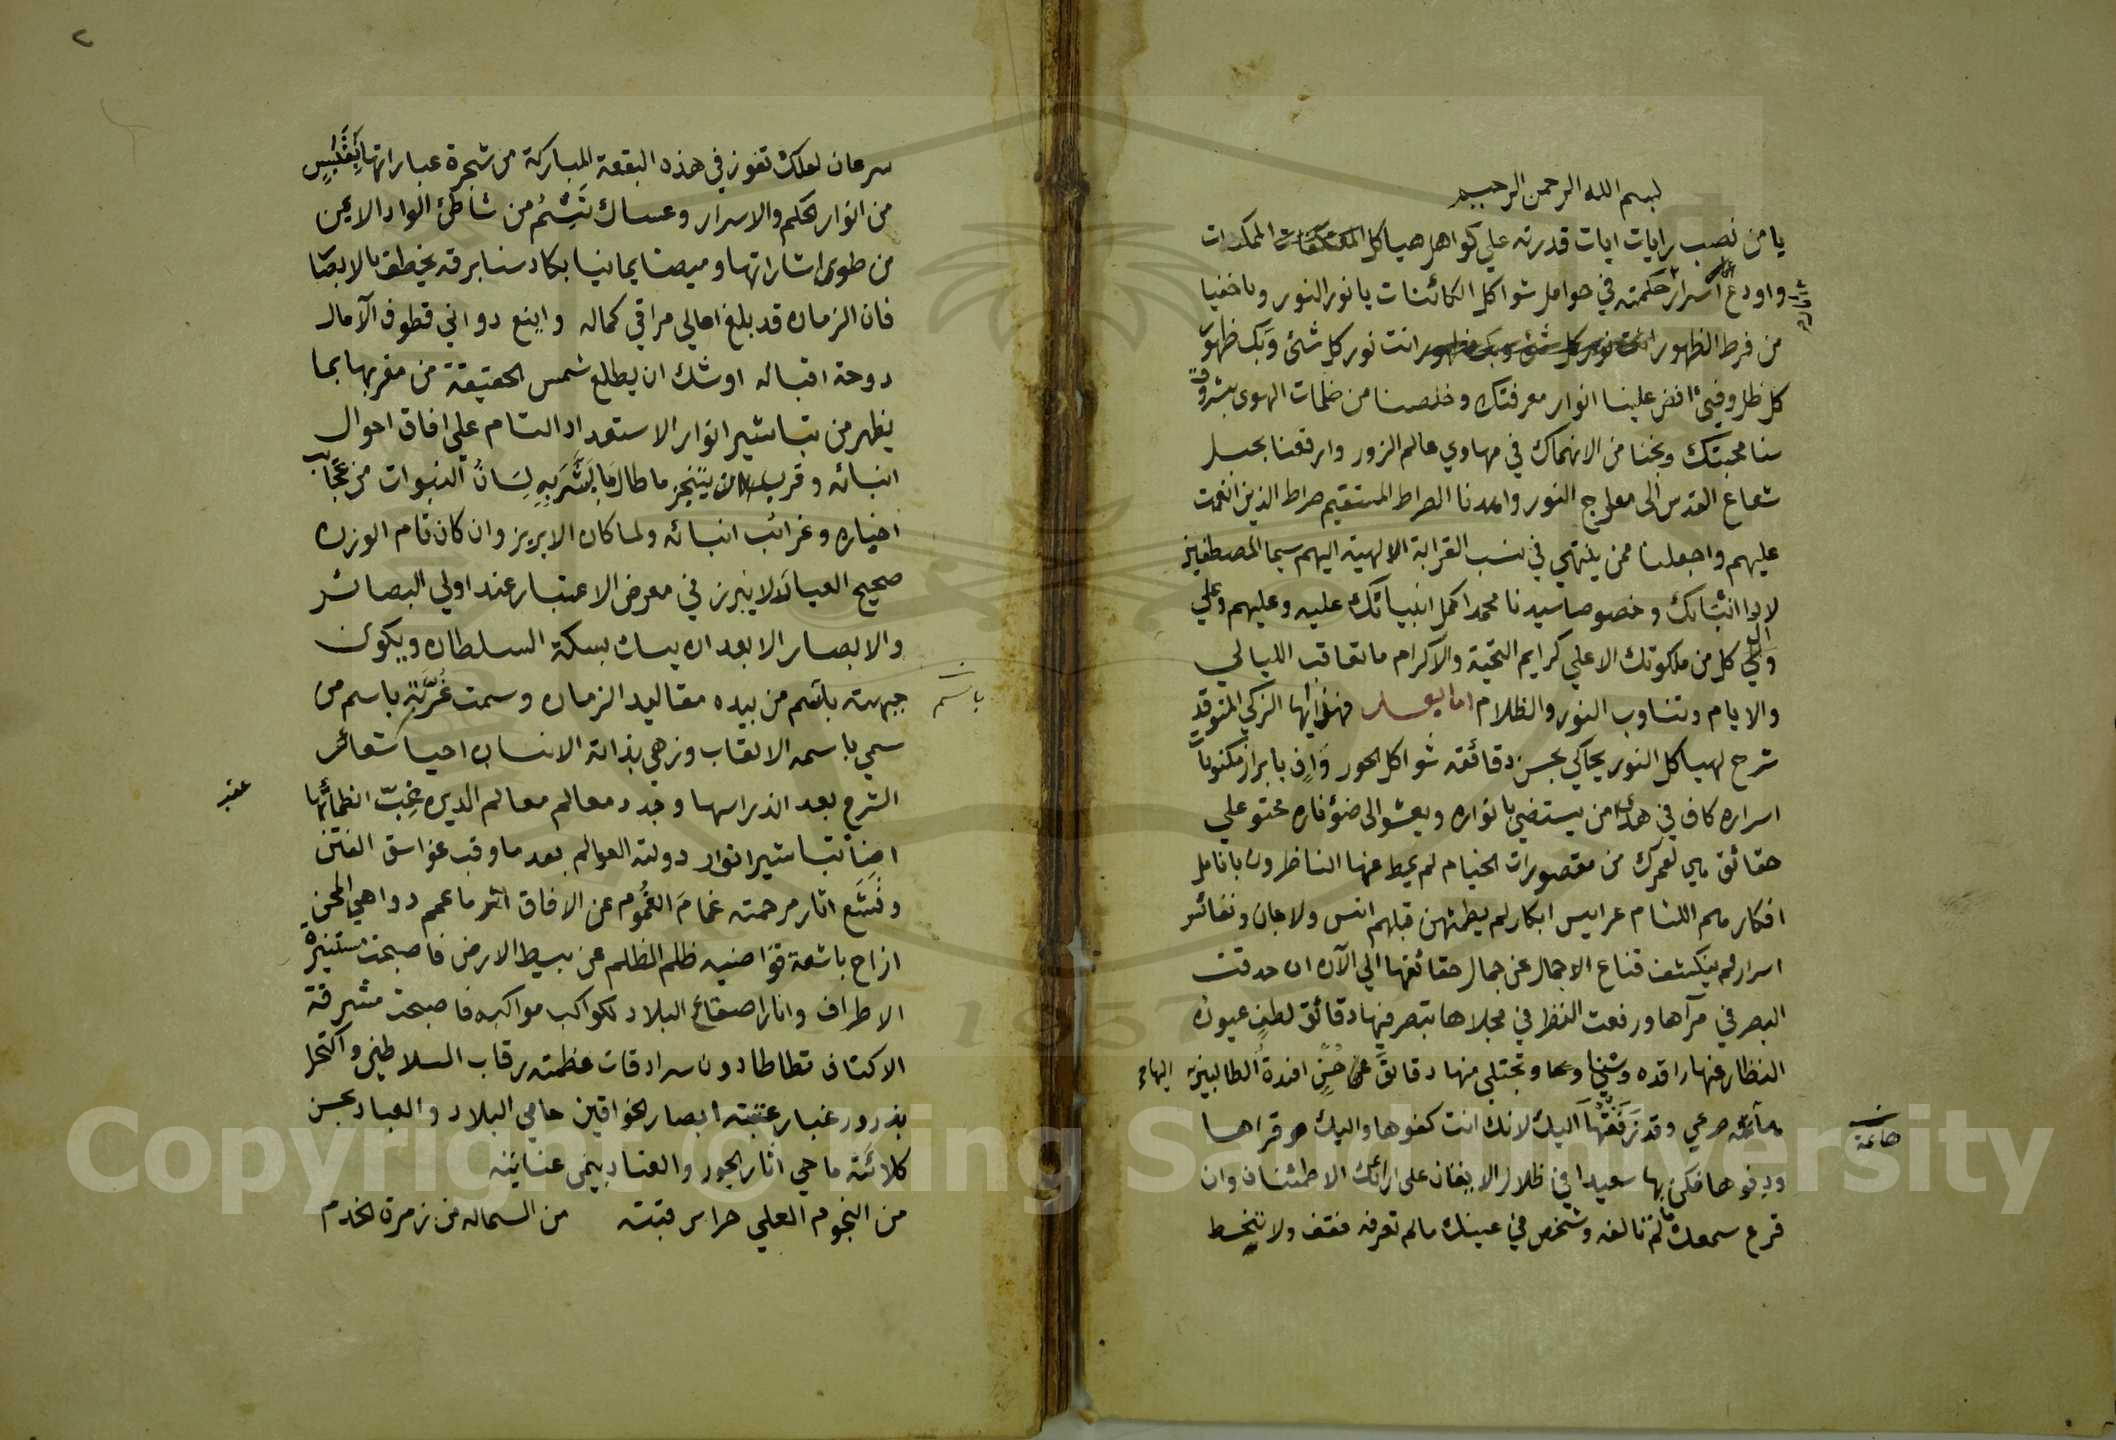 بسم الله الرحمن الرحيم
يا من نصب رايات ايات قدرته علي كواهل هياكل الممكنات
واودع اسرار حكمته في حوامل شواكل الكائنات يا نور النور ويا خفيا
من فرط الظهور انت نور كل شئ وبك ظهور
كل ظل وفيئ افض علينا انوار معرفتك وخلصنا من ظلمات الهوى بشروق
سنا محبتك ونجنا من الانهماك في مهاوي عالم الزور وارفعنا بحبل
شعاع القدس الى معارج النور واهدنا الصراط المستقيم صراط الذين انعمت
عليهم واجعلنا ممن ينتهي في نسب القرابة الالهية اليهم سيما المصطفين
وخصوصا سيدنا محمد اكمل انبيائك عليه وعليهم وعلي
ال كل من ملكوتك الاعلي كرايم التحية والاكرام ما تعاقب الليالي
والايام وتناوب النور والظلام اما بعد فهذا ايها الزكي المتوقد
شرح لهياكل النور يحاكي بحسن دقائقه شواكل الحور واف بابراز مكنونات
اسراره كاف في هداية من يستضئ بانواره ويعشوالى ضوء ناره محتو علي
حقائق هي لعمرك من مقصورات الخيام لم يمط عنها الناظرون بانامل
افكارهم اللثام عرايس ابكار لم يطمثهن قبلهم انس ولا جان ونفائس
اسرار لم ينكشف قناع الاجمال عن جمال حقائقها الي الآن ان حدقت
البصر في مرآها ورفعت النظر في مجلاها تبصر فيها دقائق لطف عيون
النظار عنها راقده وتجتلي منها دقائق حسن افئدة الطالبين اليها
وقد زففتها اليك لانك انت كفوها واليك قراها
فكن بها سعيدا في ظلال الايقان على ارائك الاطمئنان وان
قرع سمعك ما لم تالفه وشخص في عينك ما لم تعرفه فقف ولا تتخبط
٢
سرعان لعلك تفوز في هذه البقعة المباركة من شجرة عباراتها بقبس
من انوار الحكم والاسرار وعساك تشم من شاطئ الواد الايمن
من طوى اشاراتها وميضا يمانيا يكاد سنا برقه يخطف بالابصا
فان الزمان قد بلغ اعالي مراقي كماله واينع دواني قطوف الآمال
دوحة اقباله اوشك ان يطلع شمس الحقيقة من مغربها بما
يظهر من تباشير انوار الاستعداد التام علي افاق احوال
ابنائه وقريب من ينجز ما طال ما بشر به لسان النبوات من عجائب
اخباره وغرائب انبائه ولما كان الابريز وان كان تام الوزن
صحيح العيار لا يبرز في معرض الاعتبار عند اولي البصائر
والابصار الا بعد ان يسك بسكة السلطان ويكون
جبهته من بيده مقاليد الزمان وسمت غرته باسم من
سمي باسمه الالقاب وزهي بذاته الانسان احيا شعائر
الشرع بعد اندراسها وجدد معالم معالم الدين غب انطمائها
اضأ تباشير انوار دولته العوالم بعد ما وقب غواسق الفتن
وقشع اثار مرحمته غمام الغموم عن الافاق اثر ما عمم دواهي المحن
ازاح باشعة قواضبه ظلم الظلم عن بسيط الارض فاصبحت مستنيرة
الاطراف وانار اصقاع البلاد لكواكب مواكبه فاصبحت مشرقة
الاكناف تطاطا دون سرادقات عظمته رقاب السلاطين واكتحل
بذرور غبار عتبته ابصار الخواقين حامي البلاد والعباد بحسن
كلائته ماحي اثار الجور والعناد بيمن عنايته
من النجوم العلي حراس قبته من السماله من زمرة الخدم
Copyright © King Saud University
1957